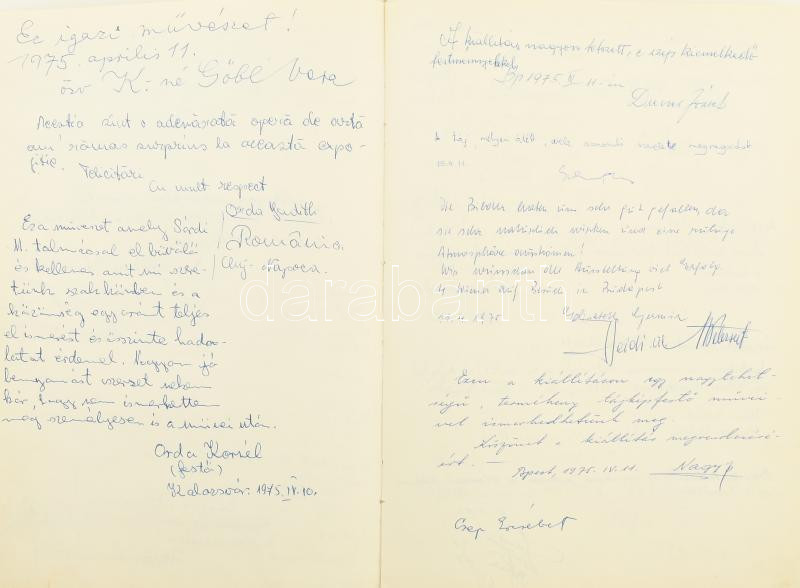 Ez igazi művészet!
1975. április 11.
özv K-né Göbl Vera
Acentia sînt o adevărată operă de artă
am rămas surprins la această expo-
ziție. Felicitări
Cu mult respect
Orda Judith
România
Cluj-Napoca.
Ez a művészet amely Sárdi
M. talmácsal elbűvölő
és kellemes amit mi szere-
tünk szakkörben és a
közönség egyaránt teljes
elismerést és őszinte hado-
latát érdemel. Nagyon jó
benyomást szerzet nekem
kár, hogy nem ismerhettem
meg személyesen is a művei után.
Orda Kornél
(festő)
Kolozsvár. 1975. IV. 10.
A kiállítás nagyon tetszett, a szép kiemelkedő
festményekkel.
Bp 1975 IV 11-én
József
A táj, mélyen átélt,
Die Bilder haben uns sehr gut gefallen, da
sie sehr natürlich wirken und eine ruhige
Atmosphäre ausströmen!
Wir wünschen der Ausstellung viel Erfolg.
4 Wiener auf Besuch in Budapest
1975
Ezen a kiállításon egy nagytehet-
ségű, termékeny tájképfestő művei-
vel ismerkedhettünk meg.
Köszönet a kiállítás megrendezésé-
ért. —
Bpest, 1975. IV. 11. Nagy
Csep Erzsébet
darabanth